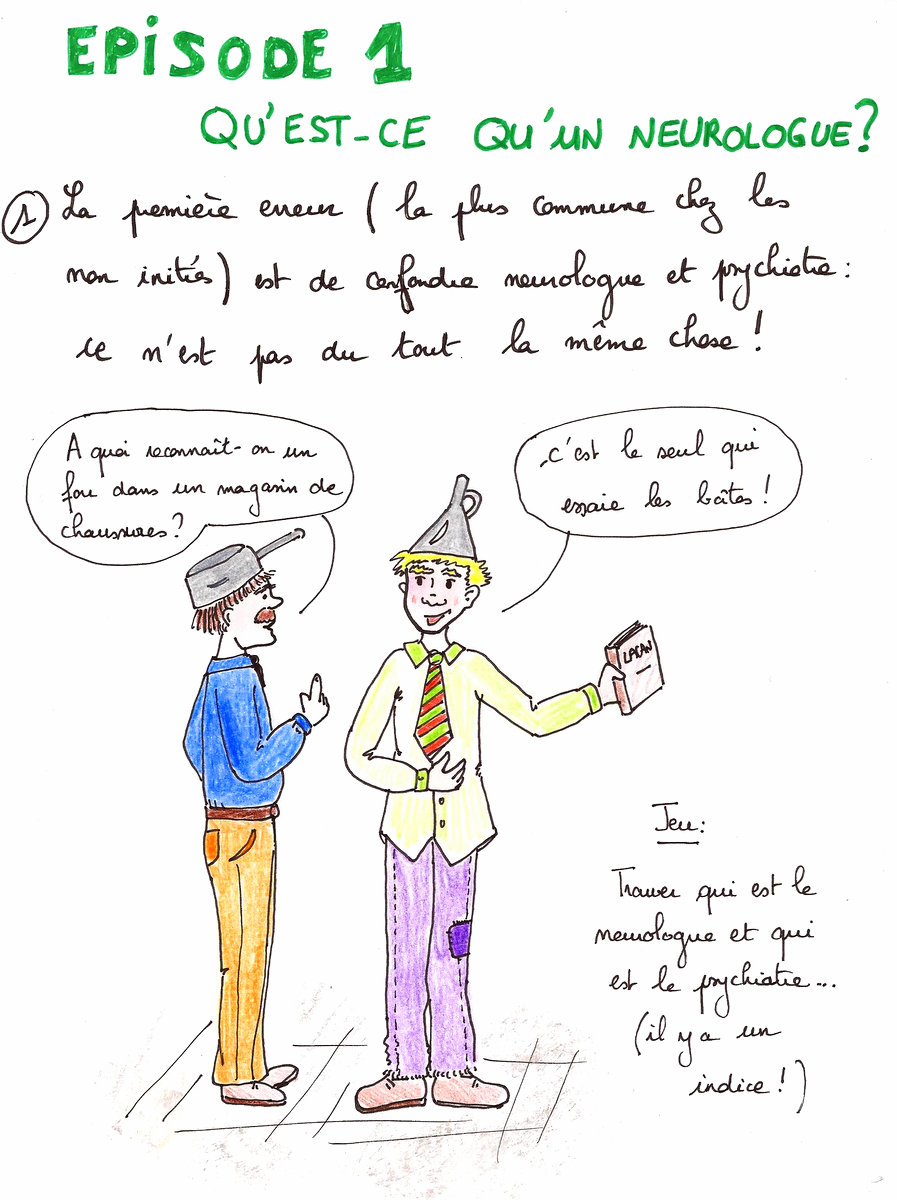 EPISODE 1
QU'EST-CE QU'UN NEUROLOGUE?
1 La première erreur (la plus commune chez les
non initiés) est de confondre neurologue et psychiatre :
ce n'est pas du tout la même chose !
A quoi reconnaît-on un
fou dans un magasin de
chaussures ?
c'est le seul qui
essaie les boîtes !
LACAN
Jeu :
Trouver qui est le
neurologue et qui
est le psychiatre...
(il y a un
indice !)